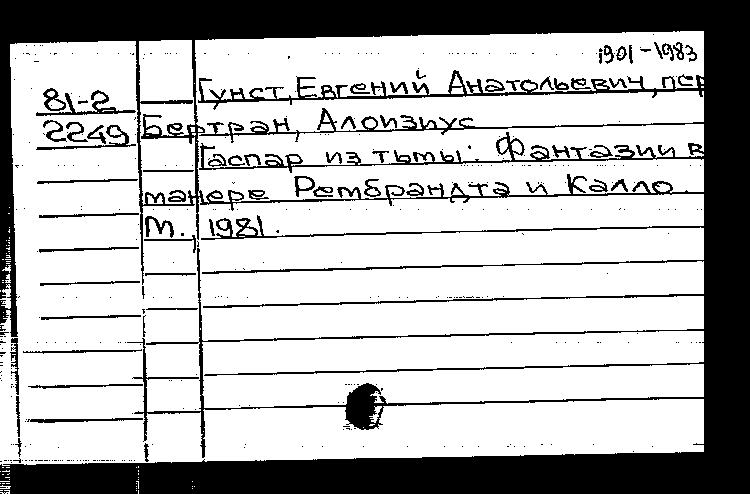 1901-1983
81-2 Гунст, Евгений Анатольевич, пер
2249 Бертран, Алоизиус
Гаспар из тьмы: Фантазии в
манере Рембрандта и Калло.
М., 1981.